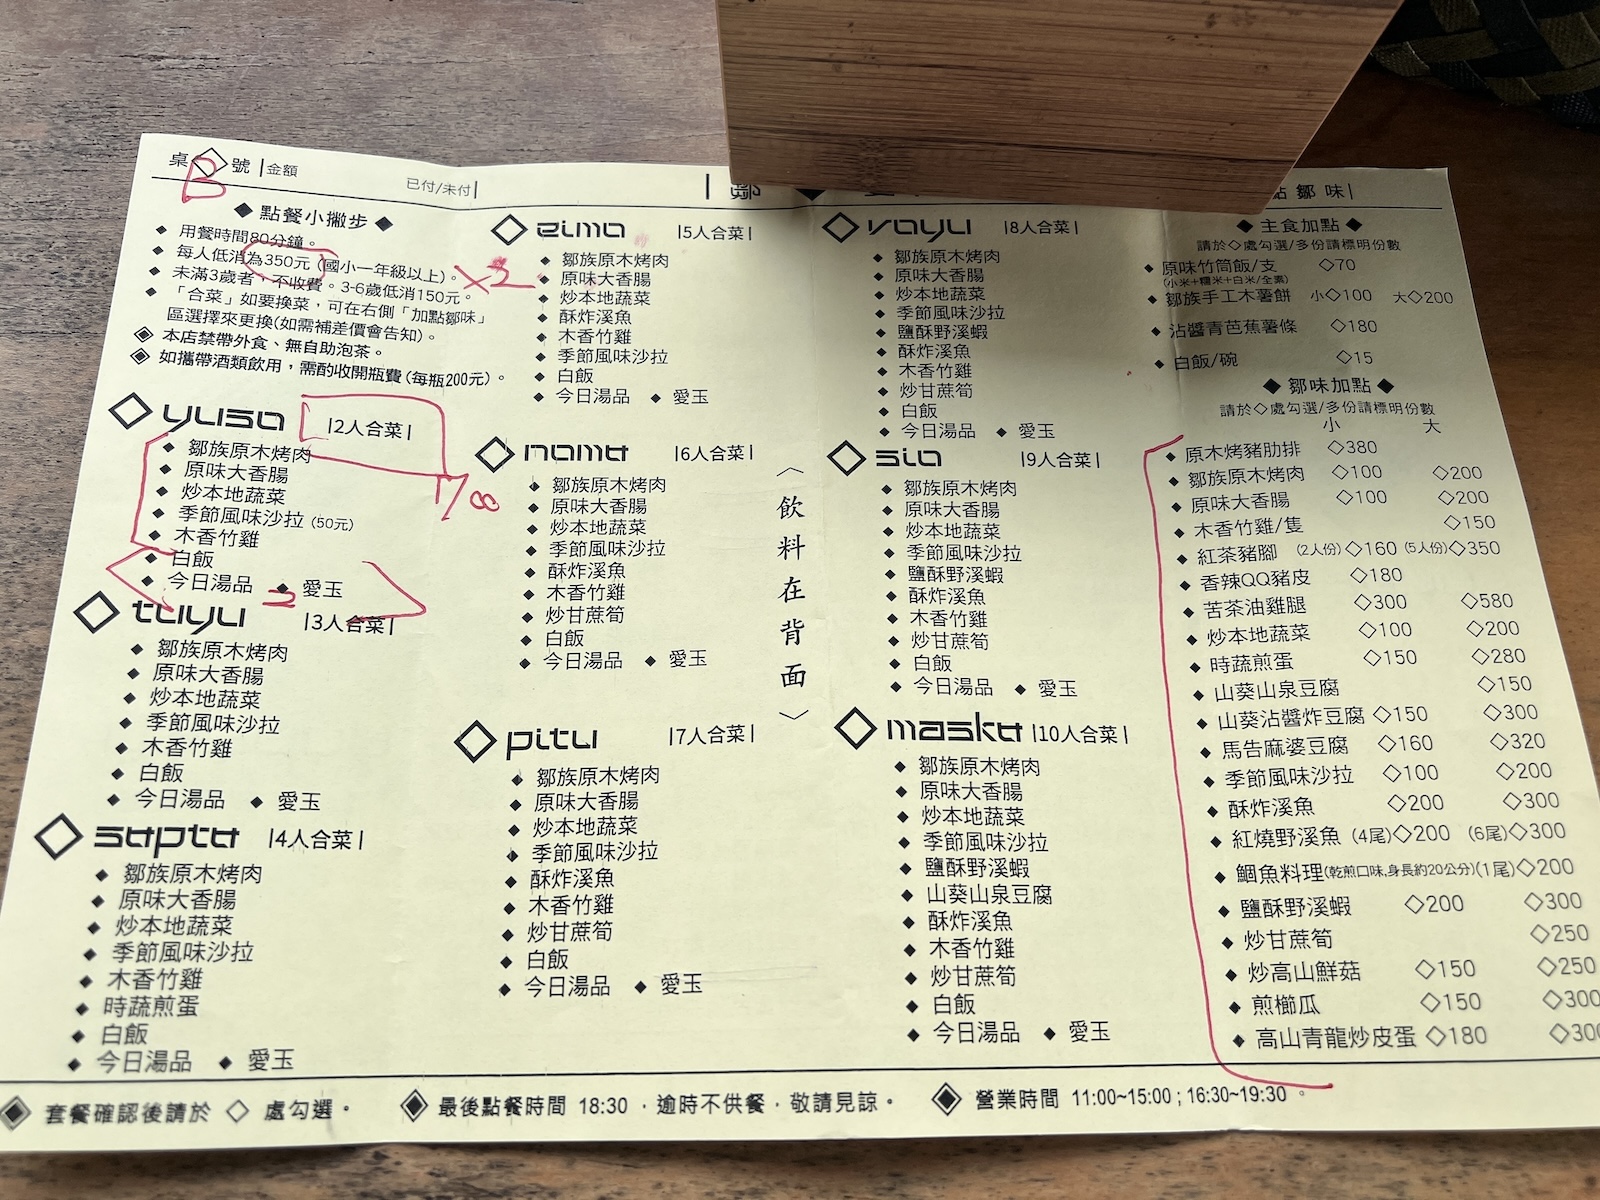 桌 號 |金額
B
已付/未付|
點 鄒 味|
◆ 點餐小撇步 ◆
◆ 用餐時間80分鐘。
◆ 每人低消為350元 (國小一年級以上)。
×2
◆ 未滿3歲者，不收費。3-6歲低消150元。
◆ 「合菜」如要換菜，可在右側「加點鄒味」
區選擇來更換(如需補差價會告知)。
本店禁帶外食、無自助泡茶。
如攜帶酒類飲用，需酌收開瓶費(每瓶200元)。
◇ yuso |2人合菜|
◆ 鄒族原木烤肉
◆ 原味大香腸
◆ 炒本地蔬菜
◆ 季節風味沙拉 (50元)
◆ 木香竹雞
◆ 白飯
◆ 今日湯品 ◆ 愛玉
2
◇ tuyu |3人合菜|
◆ 鄒族原木烤肉
◆ 原味大香腸
◆ 炒本地蔬菜
◆ 季節風味沙拉
◆ 木香竹雞
◆ 白飯
◆ 今日湯品 ◆ 愛玉
◇ sʉptʉ |4人合菜|
◆ 鄒族原木烤肉
◆ 原味大香腸
◆ 炒本地蔬菜
◆ 季節風味沙拉
◆ 木香竹雞
◆ 時蔬煎蛋
◆ 白飯
◆ 今日湯品 ◆ 愛玉
◇ eimo |5人合菜|
◆ 鄒族原木烤肉
◆ 原味大香腸
◆ 炒本地蔬菜
◆ 酥炸溪魚
◆ 木香竹雞
◆ 季節風味沙拉
◆ 白飯
◆ 今日湯品 ◆ 愛玉
◇ nomʉ |6人合菜|
◆ 鄒族原木烤肉
◆ 原味大香腸
◆ 炒本地蔬菜
◆ 季節風味沙拉
◆ 酥炸溪魚
◆ 木香竹雞
◆ 炒甘蔗筍
◆ 白飯
◆ 今日湯品 ◆ 愛玉
◇ pitu |7人合菜|
◆ 鄒族原木烤肉
◆ 原味大香腸
◆ 炒本地蔬菜
◆ 季節風味沙拉
◆ 酥炸溪魚
◆ 木香竹雞
◆ 炒甘蔗筍
◆ 白飯
◆ 今日湯品 ◆ 愛玉
〈飲料在背面〉
◇ voyu |8人合菜|
◆ 鄒族原木烤肉
◆ 原味大香腸
◆ 炒本地蔬菜
◆ 季節風味沙拉
◆ 鹽酥野溪蝦
◆ 酥炸溪魚
◆ 木香竹雞
◆ 炒甘蔗筍
◆ 白飯
◆ 今日湯品 ◆ 愛玉
◇ sio |9人合菜|
◆ 鄒族原木烤肉
◆ 原味大香腸
◆ 炒本地蔬菜
◆ 季節風味沙拉
◆ 鹽酥野溪蝦
◆ 酥炸溪魚
◆ 木香竹雞
◆ 炒甘蔗筍
◆ 白飯
◆ 今日湯品 ◆ 愛玉
◇ maskʉ |10人合菜|
◆ 鄒族原木烤肉
◆ 原味大香腸
◆ 炒本地蔬菜
◆ 季節風味沙拉
◆ 鹽酥野溪蝦
◆ 山葵山泉豆腐
◆ 酥炸溪魚
◆ 木香竹雞
◆ 炒甘蔗筍
◆ 白飯
◆ 今日湯品 ◆ 愛玉
◆ 主食加點 ◆
請於◇處勾選/多份請標明份數
◆ 原味竹筒飯/支 ◇70
(小米+糯米+白米/全素)
◆ 鄒族手工木薯餅 小◇100 大◇200
◆ 沾醬青芭蕉薯條 ◇180
◆ 白飯/碗 ◇15
◆ 鄒味加點 ◆
請於◇處勾選/多份請標明份數
小 大
◆ 原木烤豬肋排 ◇380
◆ 鄒族原木烤肉 ◇100 ◇200
◆ 原味大香腸 ◇100 ◇200
◆ 木香竹雞/隻 ◇150
◆ 紅茶豬腳 (2人份)◇160 (5人份)◇350
◆ 香辣QQ豬皮 ◇180
◆ 苦茶油雞腿 ◇300 ◇580
◆ 炒本地蔬菜 ◇100 ◇200
◆ 時蔬煎蛋 ◇150 ◇280
◆ 山葵山泉豆腐 ◇150
◆ 山葵沾醬炸豆腐 ◇150 ◇300
◆ 馬告麻婆豆腐 ◇160 ◇320
◆ 季節風味沙拉 ◇100 ◇200
◆ 酥炸溪魚 ◇200 ◇300
◆ 紅燒野溪魚 (4尾)◇200 (6尾)◇300
◆ 鯛魚料理(乾煎口味,身長約20公分)(1尾)◇200
◆ 鹽酥野溪蝦 ◇200 ◇300
◆ 炒甘蔗筍 ◇250
◆ 炒高山鮮菇 ◇150 ◇250
◆ 煎櫛瓜 ◇150 ◇300
◆ 高山青龍炒皮蛋 ◇180 ◇300
套餐確認後請於 ◇ 處勾選。
最後點餐時間 18:30 ，逾時不供餐，敬請見諒。
營業時間 11:00~15:00 ; 16:30~19:30 。